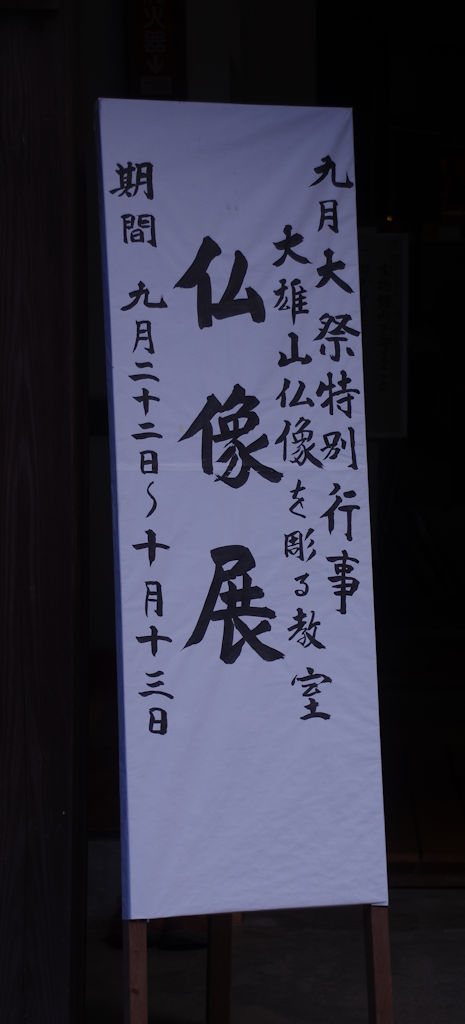 九月大祭特別行事
大雄山仏像を彫る教室
仏像展
期間 九月二十二日〜十月十三日